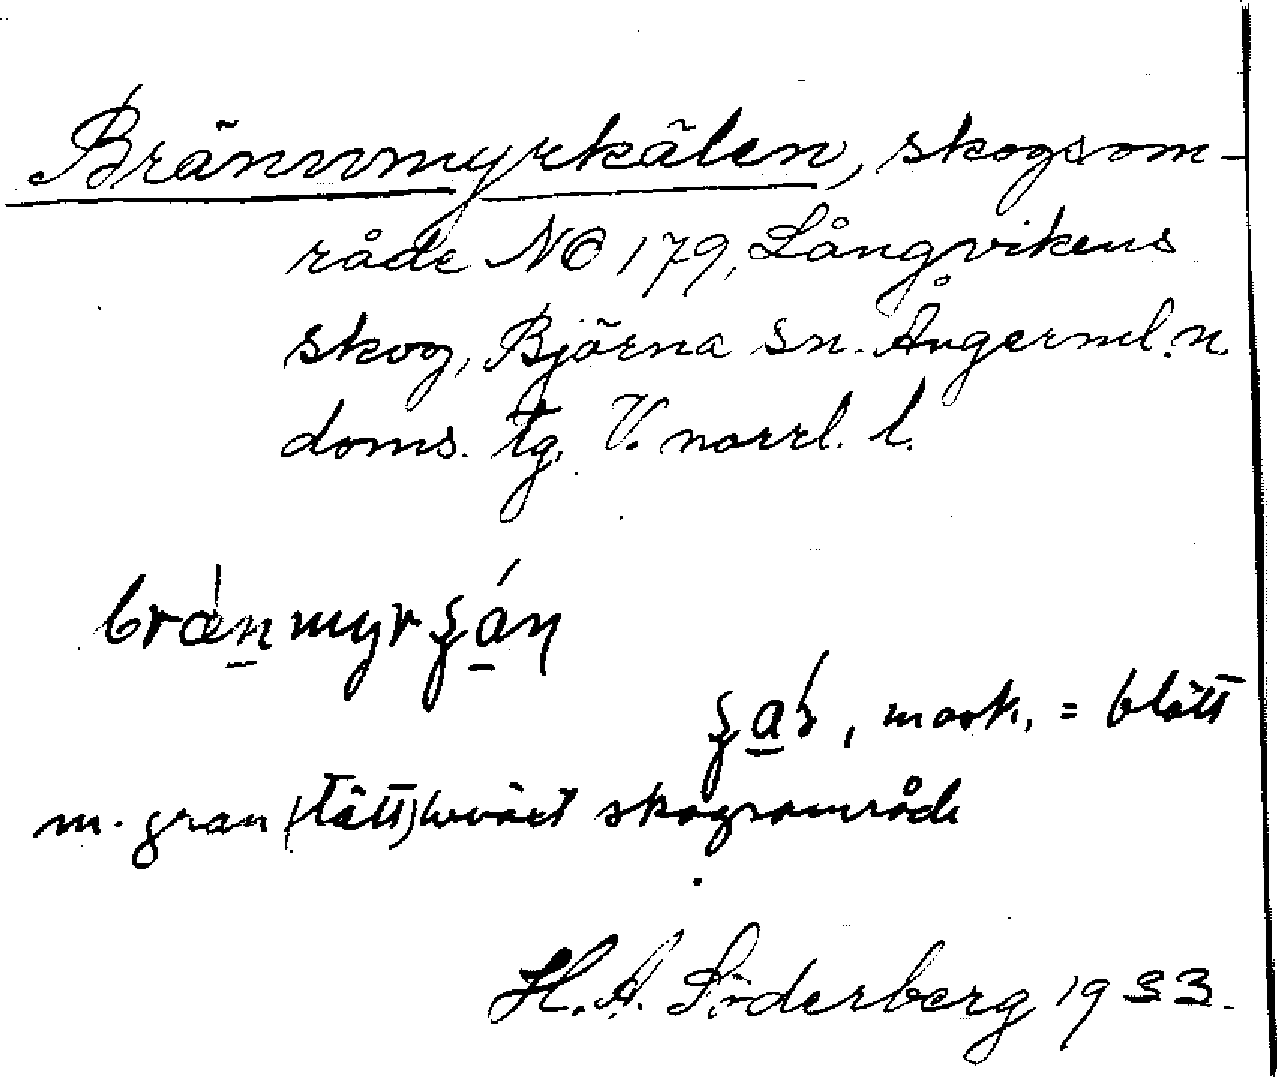 Brännmyrkälen, skogsom-
råde NO 179, Långvikens
skog, Björna sn. Ångerml. n.
doms. tg, V. norrl. l.
mask. = blött
m. gran (tätt) beväxt skogsområde
H. A. Söderberg 1933.